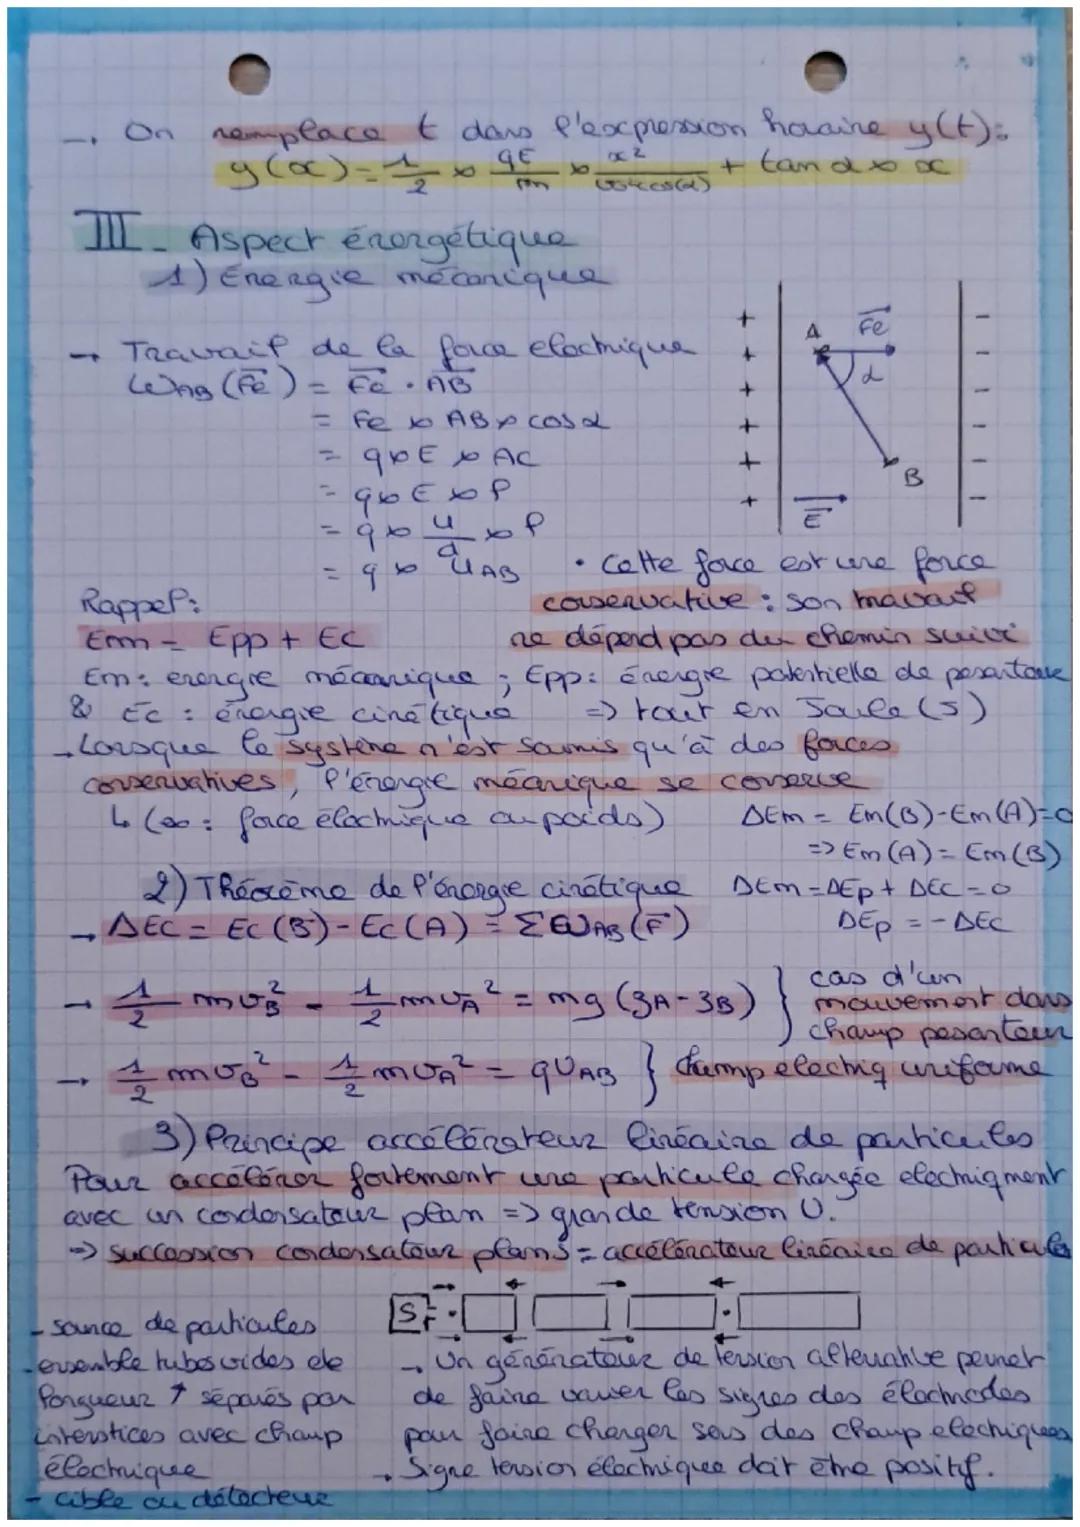 → On remplace t dans l'expression horaire y(t):
y(x) = 1/2 x qE/m x x²/v0²cos(α) + tan α x x
III_ Aspect énergétique
1) Energie mécanique
→ Travail de la force electrique
WAB (Fe) = Fe . AB
= Fe x AB x cos α
= q x E x AC
= q x E x l
= q x U/d x l
= q x UAB
+ + + + + +
A Fe
α
B
E
- - - - - -
• Cette force est une force
conservative : son travail
ne dépend pas du chemin suivi
Rappel:
Em = Epp + EC
Em: energie mécanique ; Epp: énergie potentielle de pesanteur
& Ec : énergie cinétique => tout en Joule (J)
→ Lorsque le système n'est soumis qu'à des forces
conservatives, l'énergie mécanique se conserve
↳ (ex : force électrique ou poids)
ΔEm = Em(B)-Em(A)=0
=> Em(A) = Em(B)
ΔEm = ΔEp + ΔEC = 0
ΔEp = - ΔEC
2) Théorème de l'énergie cinétique
→ ΔEC = EC (B) - EC (A) = ΣWAB (F)
→ 1/2 mvB² - 1/2 mvA² = mg (zA - zB) } cas d'un
mouvement dans
champ pesanteur
→ 1/2 mvB² - 1/2 mvA² = qUAB } champ electriq uniforme
3) Principe accélérateur linéaire de particules
Pour accélérer fortement une particule chargée electriqment
avec un condensateur plan => grande tension U.
=> succession condensateur plans = accélérateur linéaire de particules
S
- source de particules
- ensemble tubes vides de
longueur ↑ séparés par
interstices avec champ
électrique
- cible ou détecteur
→ Un générateur de tension alternative permet
de faire varier les signes des électrodes
pour faire changer sens des champ electriques
→ Signe tension électrique doit être positif.